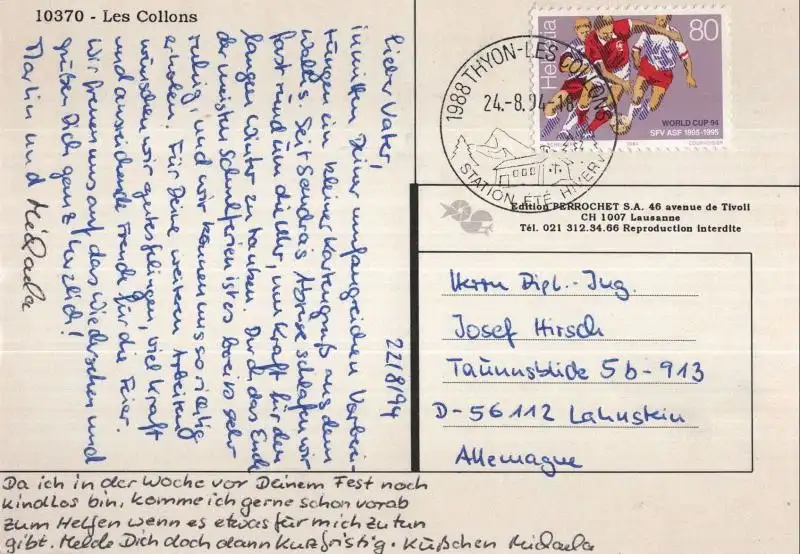 10370 - Les Collons
22/8/94
Lieber Vater,
inmitten Deiner umfangreichen Vorbei-
tungen ein kleiner Kartengruß aus dem
Wallis. Seit Sandras Abreise schlafen wir
fast rund um die Uhr, um Kraft für den
langen Winter zu tanken. Durch das Ende
der meisten Schulferien ist es bereits sehr
ruhig, und wir können uns so richtig
erholen. Für Deine weiteren Arbeiten
wünschen wir gutes Gelingen, viel Kraft
und ausreichende Freude für die Feier.
Wir freuen uns auf das Wiedersehen und
grüßen Dich ganz herzlich!
Martin und Michaela
Da ich in der Woche vor Deinem Fest noch
kindlos bin, komme ich gerne schon vorab
zum Helfen wenn es etwas für mich zu tun
gibt. Melde Dich doch dann kurzfristig. Küßchen Michaela
1988 THYON-LES COLLONS
24.-8.94-18
STATION ÉTÉ HIVER
Helvetia
80
WORLD CUP 94
SFV ASF 1895-1995
1994
COURVOISIER
Edition PERROCHET S.A. 46 avenue de Tivoli
CH 1007 Lausanne
Tél. 021 312.34.66 Reproduction interdite
Herrn Dipl.-Ing.
Josef Hirsch
Taunusblick 5b-913
D-56112 Lahnstein
Allemagne